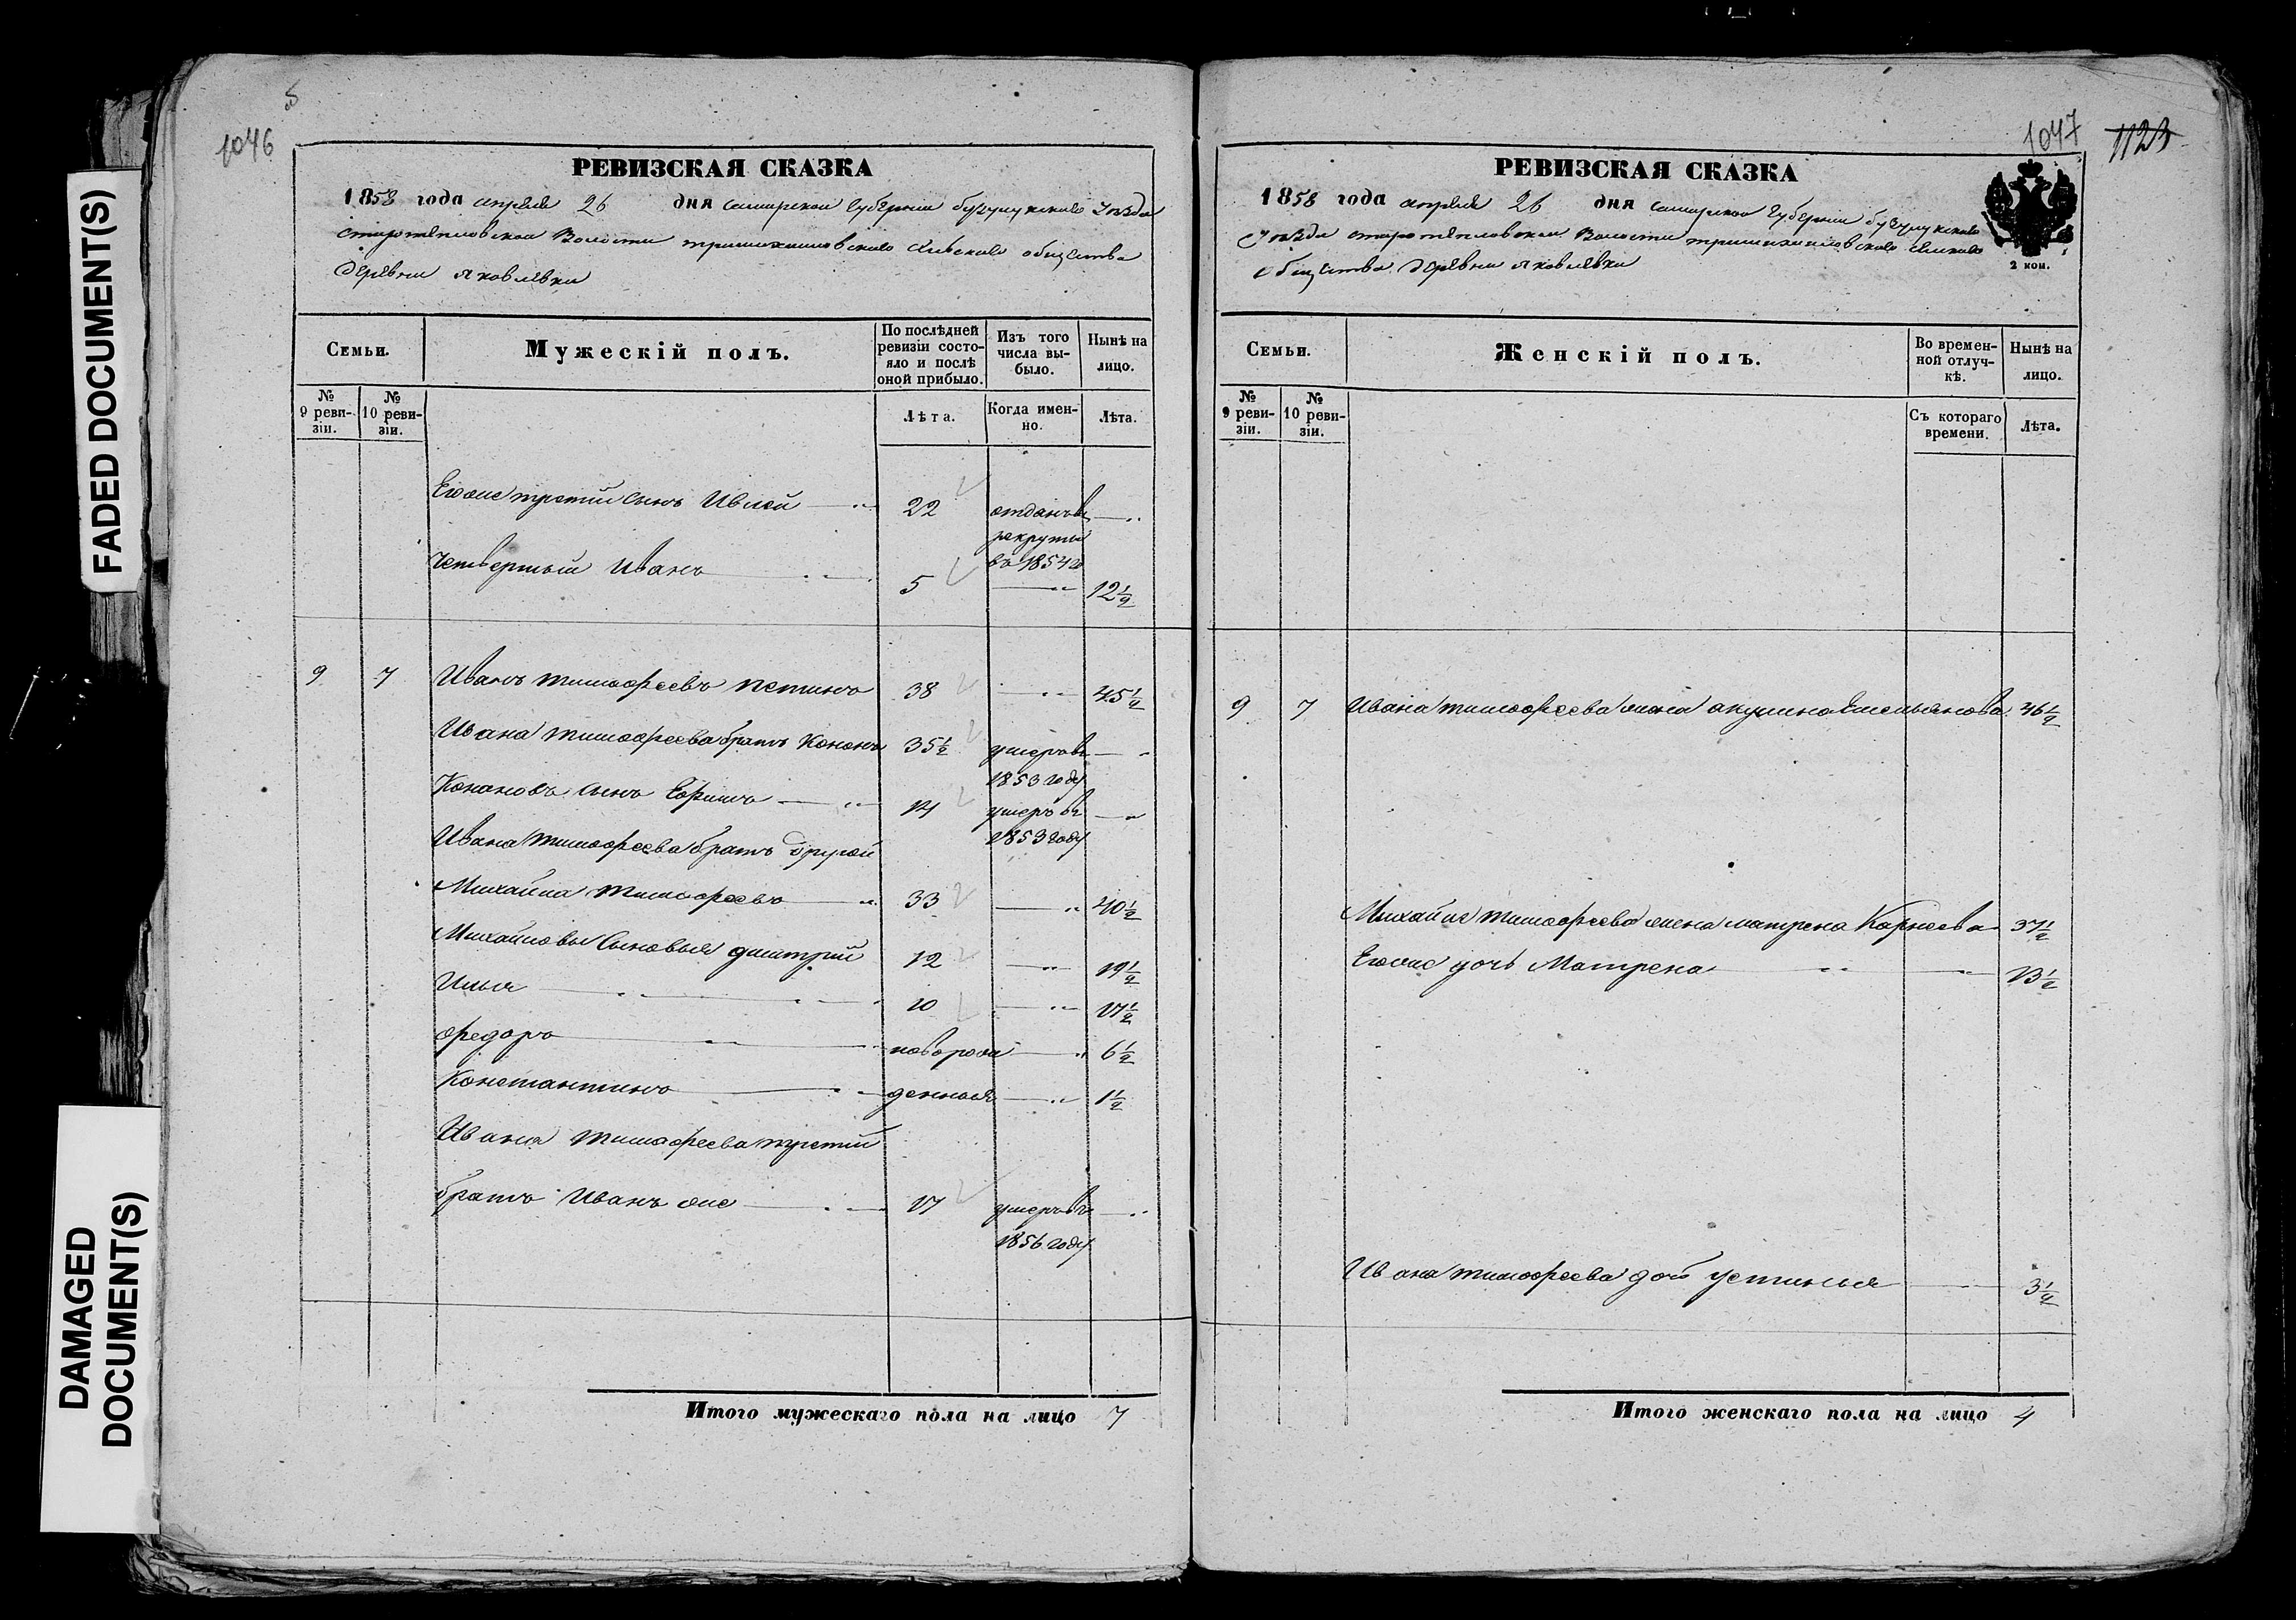 FADED DOCUMENT(S)
DAMAGED
DOCUMENT(S)
5
1046
РЕВИЗСКАЯ СКАЗКА
1858 года апреля 26 дня самарской губернии бузулукского уезда
деревни яковлевки
Семьи.
Мужескій полъ.
По послѣдней
ревизіи состо-
яло и послѣ
оной прибыло.
Изъ того
числа вы-
было.
Нынѣ на
лицо.
№
9 реви-
зіи.
№
10 реви-
зіи.
Лѣта.
Когда имен-
но.
Лѣта.
Егоже третий сынъ Ивлей 22 отданъ в
рекруты
въ 1854 го
Четвертый Иванъ 5 12½
9 7 Иванъ тимофеевъ петинъ 38 45½
Ивана тимофеева братъ Кононъ 35½ умеръ въ
1853 году
Кононовъ сынъ Ефимъ 14 умеръ въ
1853 году
Ивана тимофеева братъ другой
Михайла тимофеевъ 33 40½
Михайловы Сыновья дмитрий 12 19½
Илья 10 17½
федоръ новорож 6½
Константинъ денныя 1½
Ивана тимофеева третий
братъ Иванъ же 17 умеръ въ
1856 году
Итого мужескаго пола на лицо 7
1047 1123
РЕВИЗСКАЯ СКАЗКА
1858 года апреля 26 дня самарской губернии бузулукского
общества деревни яковлевки
2 коп.
Семьи.
Женскій полъ.
Во времен-
ной отлуч-
кѣ.
Нынѣ на
лицо.
№
9 реви-
зіи.
№
10 реви-
зіи.
Съ котораго
времени.
Лѣта.
9 7 Ивана тимофеева жена акулина Емельянова 46½
Михайла тимофеева жена матрена Карнеева 37½
Егоже дочь Матрена 13½
Ивана тимофеева дочь устинья 3½
Итого женскаго пола на лицо 4